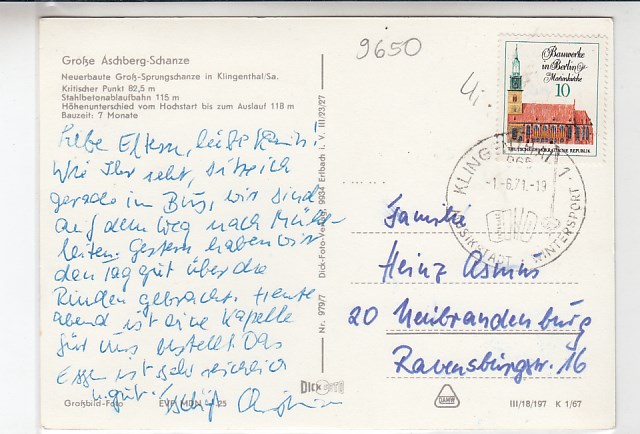 Große Aschberg-Schanze
Neuerbaute Groß-Sprungschanze in Klingenthal/Sa.
Kritischer Punkt 82,5 m
Stahlbetonablaufbahn 115 m
Höhenunterschied vom Hochstart bis zum Auslauf 118 m
Bauzeit: 7 Monate
Liebe Eltern,
Wie Ihr seht, sitze ich
gerade im Bus, wir sind
auf dem Weg nach Mühl-
leiten. Gestern haben wir
den Tag gut über die
Runden gebracht. Heute
abend ist eine Kapelle
für uns bestellt. Das
Essen ist sehr reichlich
u. gut.
Großbild-Foto EVP MDN -.25
Nr. 979/7 Dick-Foto-Verlag, 9934 Erlbach i. V. III/25/27
DICK
9650
Bauwerke
in Berlin
Marienkirche
10
DEUTSCHE DEMOKRATISCHE REPUBLIK
KLINGENTHAL 1
-1.-6.71.-19
MUSIKSTADT WINTERSPORT
Familie
Heinz Asmus
20 Neubrandenburg
Ravensburgstr. 16
III/18/197 K 1/67